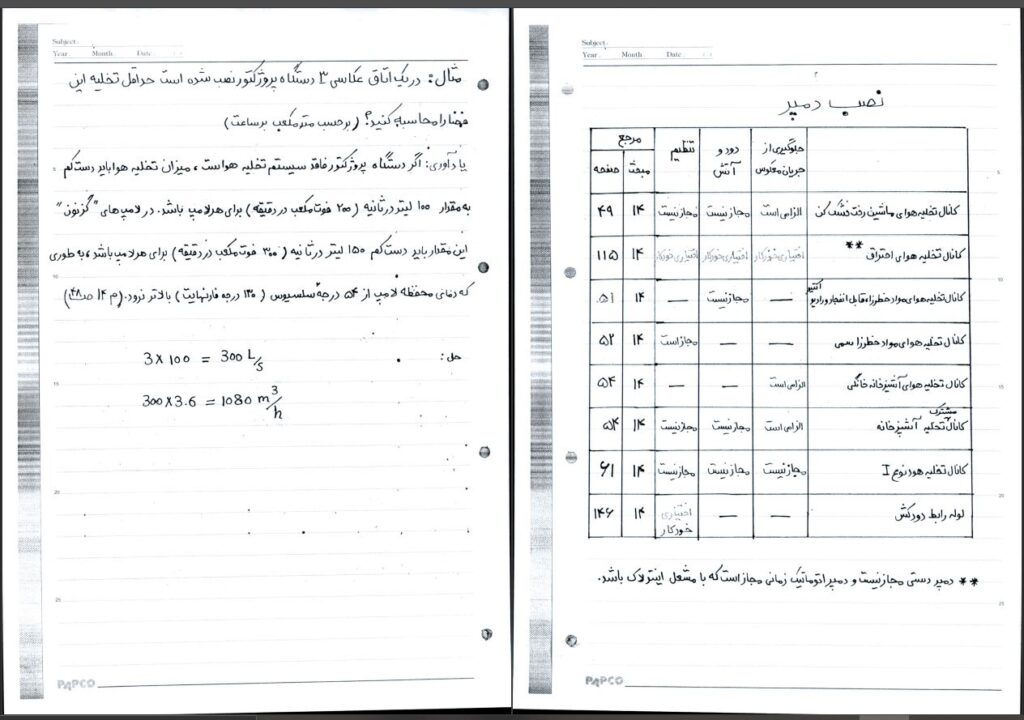 Subject:
Year. Month. Date.
مثال: در یک اتاق عکاسی ۳ دستگاه پروژکتور نصب شده است حداقل تخلیه این
فضا را محاسبه کنید؟ (برحسب مترمکعب بر ساعت)
یادآوری: اگر دستگاه پروژکتور فاقد سیستم تخلیه هواست، میزان تخلیه هوا باید دست کم
به مقدار ۱۰۰ لیتر در ثانیه (۲۰۰ فوت مکعب در دقیقه) برای هر لامپ باشد. در لامپ های "گزنون"
این مقدار باید دست کم ۱۵۰ لیتر در ثانیه (۳۰۰ فوت مکعب در دقیقه) برای هر لامپ باشد، به طوری
که دمای محفظه لامپ از ۵۴ درجه سلسیوس (۱۳۰ درجه فارنهایت) بالاتر نرود. (م ۱۴ ص ۴۸)
حل:
3 × 100 = 300 L/s
300 × 3.6 = 1080 m³/h
PAPCO
Subject:
Year. Month. Date.
۲
نصب دمپر
جلوگیری از جریان معکوس دود و آتش تنظیم مرجع
مبحث صفحه
کانال تخلیه هوای ماشین رخت خشک کن الزامی است مجاز نیست مجاز نیست ۱۴ ۴۹
کانال تخلیه هوای احتراق ** اختیاری خودکار اختیاری خودکار اختیاری خودکار ۱۴ ۱۱۵
کانال تخلیه هوای مواد خطرزا، قابل انفجار و رادیو اکتیو — مجاز نیست — ۱۴ ۵۱
کانال تخلیه هوای مواد خطرزا سمی — — مجاز است ۱۴ ۵۲
کانال تخلیه هوای آشپزخانه خانگی الزامی است — — ۱۴ ۵۴
کانال تخلیه مشترک آشپزخانه الزامی است مجاز نیست مجاز نیست ۱۴ ۵۴
کانال تخلیه هود نوع I مجاز نیست مجاز نیست مجاز نیست ۱۴ ۶۱
لوله رابط دودکش — — اختیاری خودکار ۱۴ ۱۴۶
** دمپر دستی مجاز نیست و دمپر اتوماتیک زمانی مجاز است که با مشعل اینترلاک باشد.
PAPCO